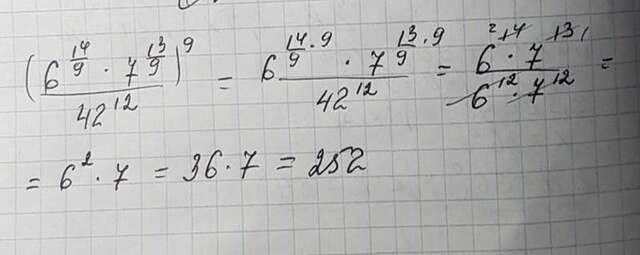 (6^(14/9) · 7^(13/9))^9 / 42^12 = 6^(14/9 · 9) · 7^(13/9 · 9) / 42^12 = 6^14 · 7^13 / 6^12 · 7^12 =
= 6^2 · 7 = 36 · 7 = 252